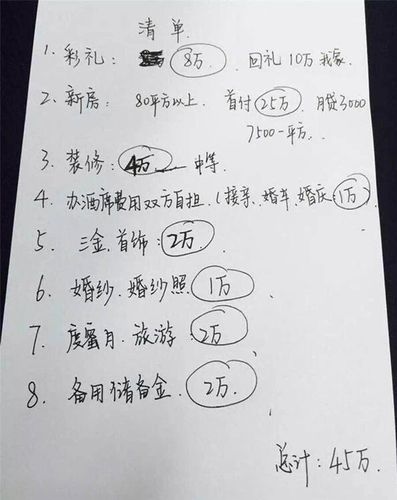 清单
1. 彩礼: 8万. 回礼10万 我家.
2. 新房: 80平方以上. 首付25万. 月贷3000
7500一平方.
3. 装修: 4万 中等.
4. 办酒席费用双方自担. (接亲、婚车、婚庆: 1万)
5. 三金. 首饰: 2万.
6. 婚纱. 婚纱照. 1万
7. 度蜜月. 旅游: 2万
8. 备用储备金. 2万.
总计: 45万.